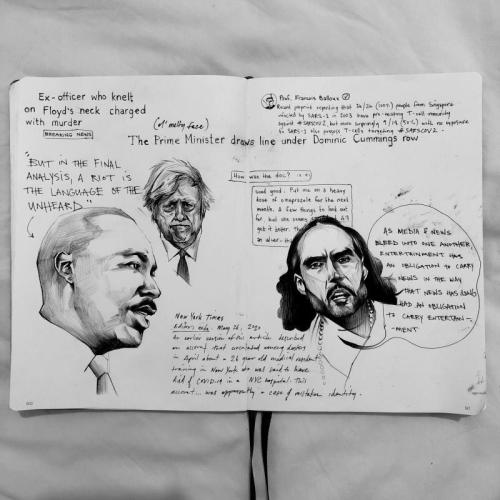 Ex-officer who knelt
on Floyd's neck charged
with murder
BREAKING NEWS
(ol' melty face)
The Prime Minister draws line under Dominic Cummings row
"BUT IN THE FINAL
ANALYSIS, A RIOT IS
THE LANGUAGE OF THE
UNHEARD"
Prof. Francois Balloux
Recent preprint reporting that (100%) people from Singapore
infected by SARS-1 in 2003 have T-cell immunity
against #SARSCOV2, but more surprisingly 9/18 (50%) with no exposure
to SARS-1 also possess T-cells targeting #SARSCOV2.
How was the doc?
Good good. Put me on a heavy
dose of omeprazole for the next
month. A few things to look out
for, but she
get it better.
an ulcer.
AS MEDIA & NEWS
BLEED INTO ONE ANOTHER
ENTERTAINMENT HAS
AN OBLIGATION TO CARRY
NEWS IN THE WAY
THAT NEWS HAS LONG
HAD AN OBLIGATION
TO CARRY ENTERTAIN-
MENT
New York Times
Editors note. May 26, 2020
An earlier version of this article described
an account that circulated among doctors
in April about a 26 year old medical resident
training in New York who was said to have
died of COVID-19 in a NYC hospital. This
account... was apparently a case of mistaken identity.